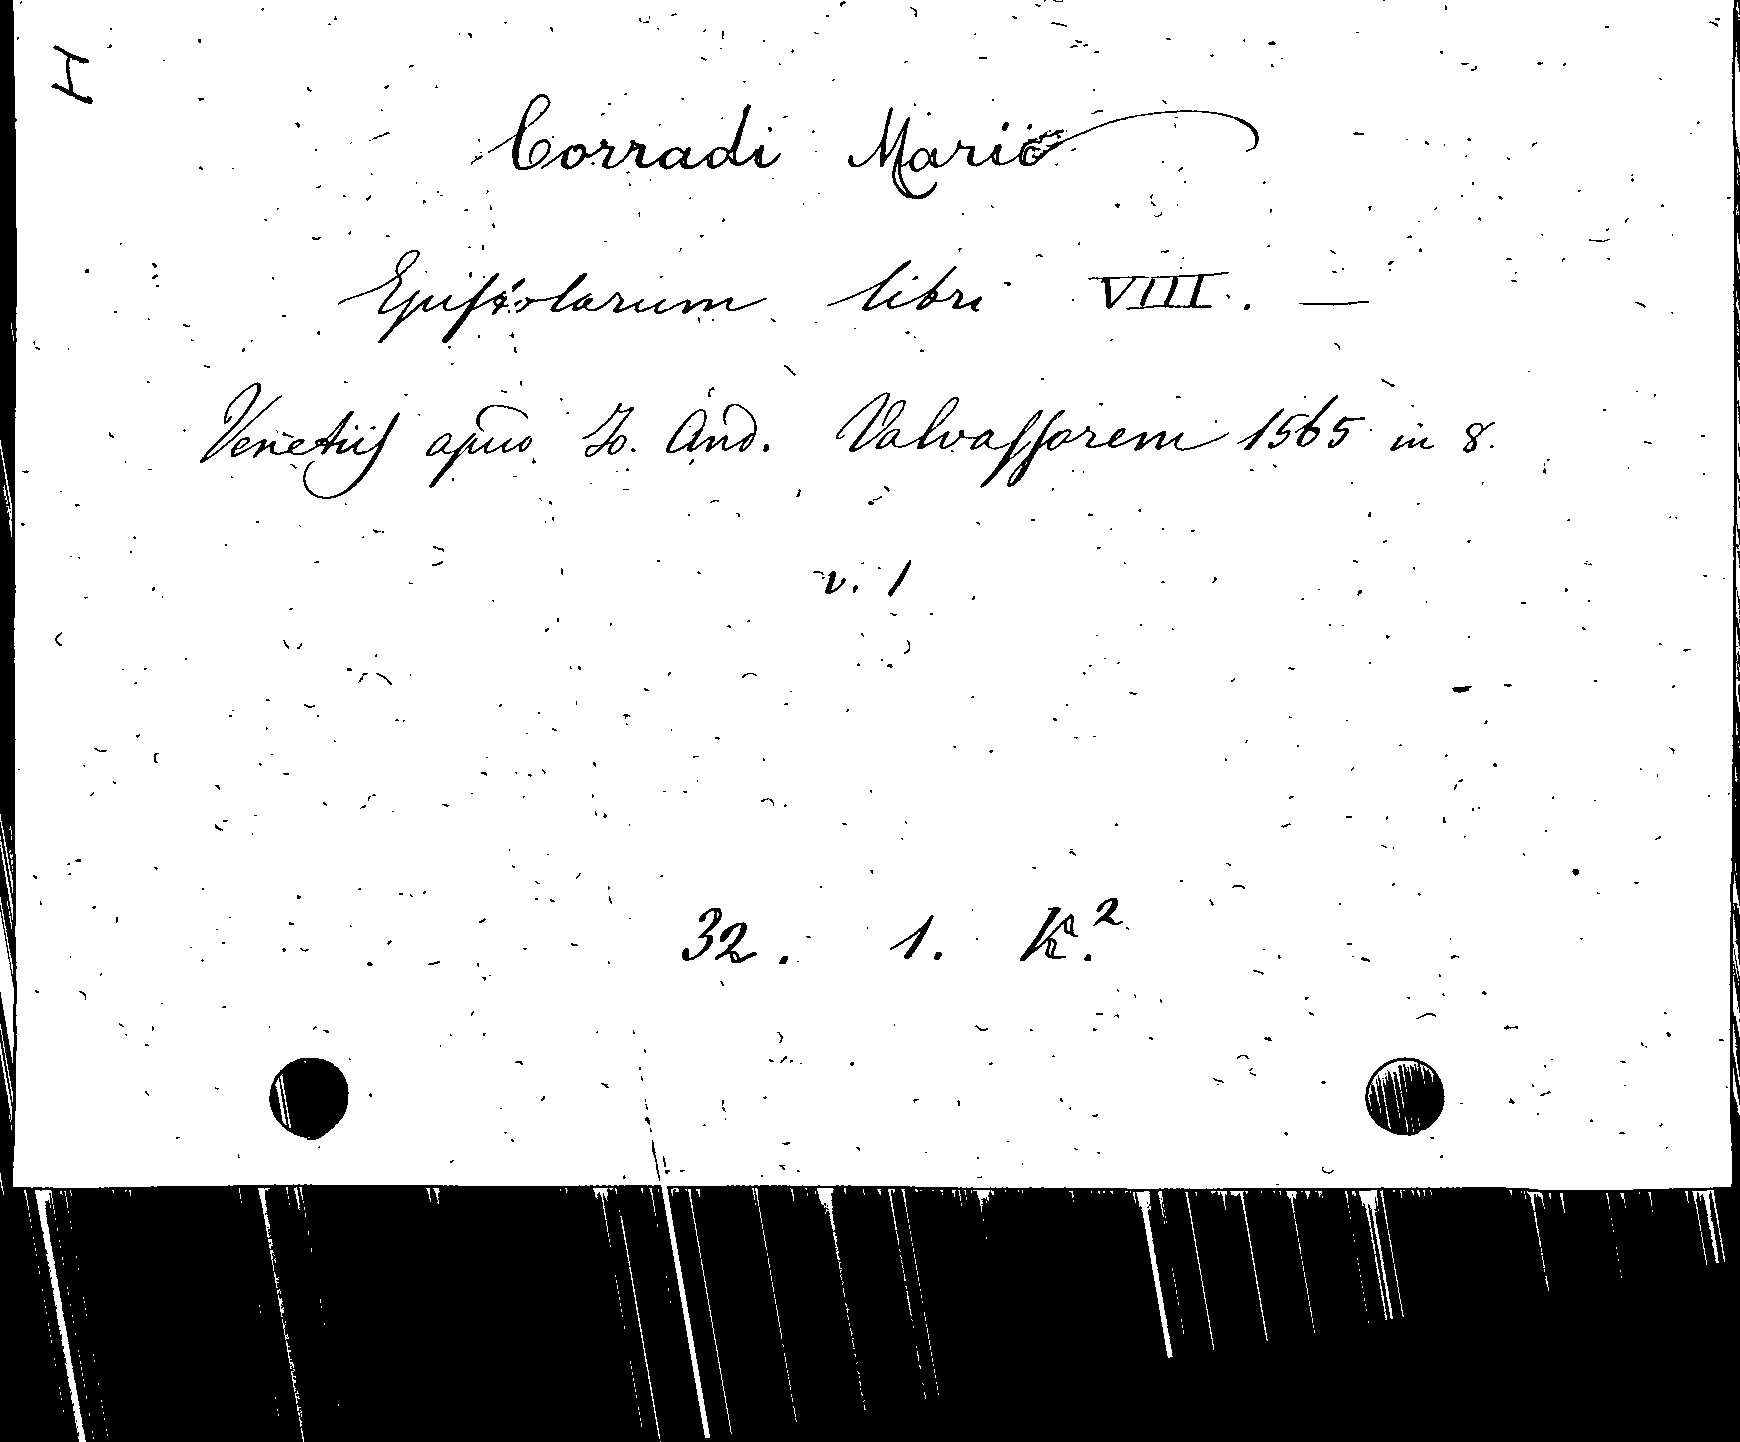 H
Corradi Mario
Epistolarum libri VIII. —
Venetiis apud Io. And. Valvassorem 1565 in 8.
v. 1
32. 1. K.²